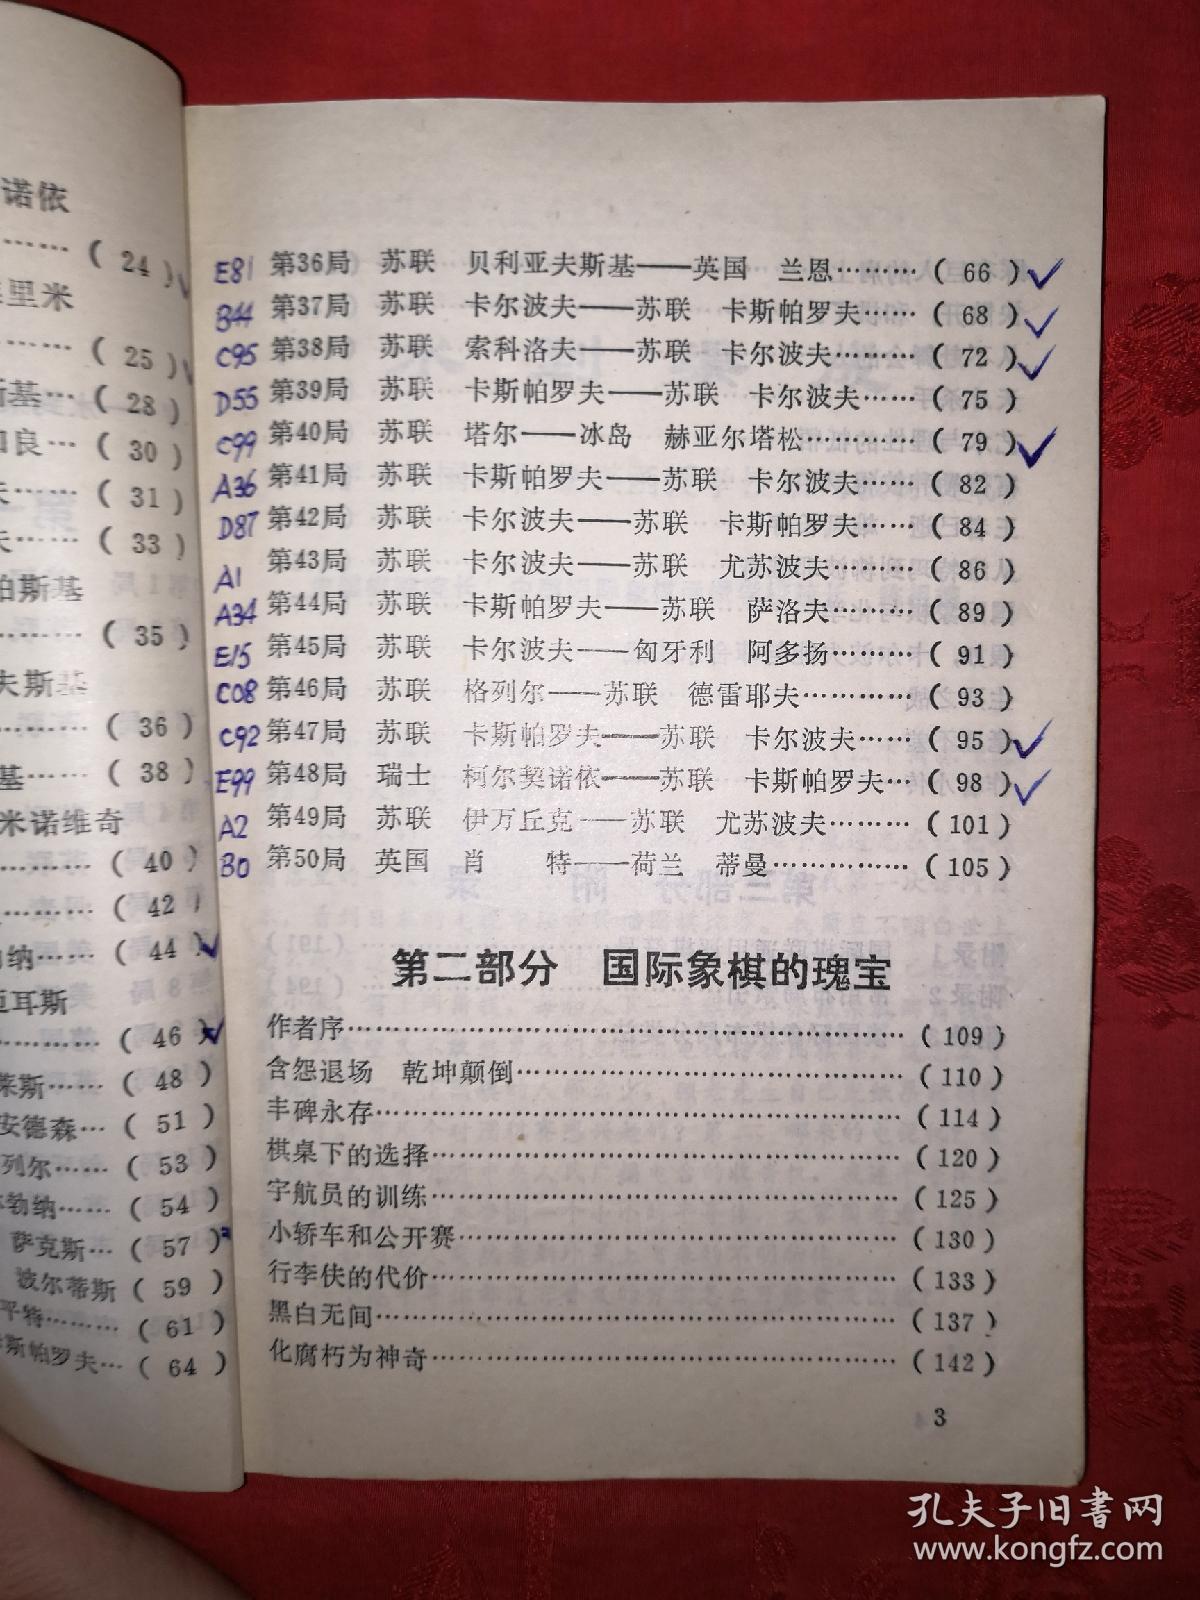 诺依
……(24)✓
里米
……(25)✓
基…(28)
良…(30)
……(31)
……(33)
帕斯基
………(35)
夫斯基
………(36)
基……(38)
米诺维奇
………(40)
………(42)
纳……(44)✓
耳斯
………(46)✓
莱斯……(48)
安德森…(51)
列尔……(53)
勃纳……(54)
萨克斯…(57)
波尔蒂斯(59)
平特………(61)
斯帕罗夫…(64)
E81 第36局 苏联 贝利亚夫斯基——英国 兰恩………(66)✓
B44 第37局 苏联 卡尔波夫——苏联 卡斯帕罗夫……(68)✓
C95 第38局 苏联 索科洛夫——苏联 卡尔波夫………(72)✓
D55 第39局 苏联 卡斯帕罗夫——苏联 卡尔波夫……(75)
C99 第40局 苏联 塔尔——冰岛 赫亚尔塔松…………(79)✓
A36 第41局 苏联 卡斯帕罗夫——苏联 卡尔波夫……(82)
D87 第42局 苏联 卡尔波夫——苏联 卡斯帕罗夫……(84)
A1 第43局 苏联 卡尔波夫——苏联 尤苏波夫………(86)
A34 第44局 苏联 卡斯帕罗夫——苏联 萨洛夫………(89)
E15 第45局 苏联 卡尔波夫——匈牙利 阿多扬………(91)
C08 第46局 苏联 格列尔——苏联 德雷耶夫…………(93)
C92 第47局 苏联 卡斯帕罗夫——苏联 卡尔波夫……(95)✓
E99 第48局 瑞士 柯尔契诺依——苏联 卡斯帕罗夫…(98)✓
A2 第49局 苏联 伊万丘克——苏联 尤苏波夫………(101)
B0 第50局 英国 肖 特——荷兰 蒂曼……………(105)
第二部分 国际象棋的瑰宝
作者序……………………………………………………(109)
含怨退场 乾坤颠倒……………………………………(110)
丰碑永存…………………………………………………(114)
棋桌下的选择……………………………………………(120)
宇航员的训练……………………………………………(125)
小轿车和公开赛…………………………………………(130)
行李伕的代价……………………………………………(133)
黑白无间…………………………………………………(137)
化腐朽为神奇……………………………………………(142)
3
孔夫子旧书网
www.kongfz.com